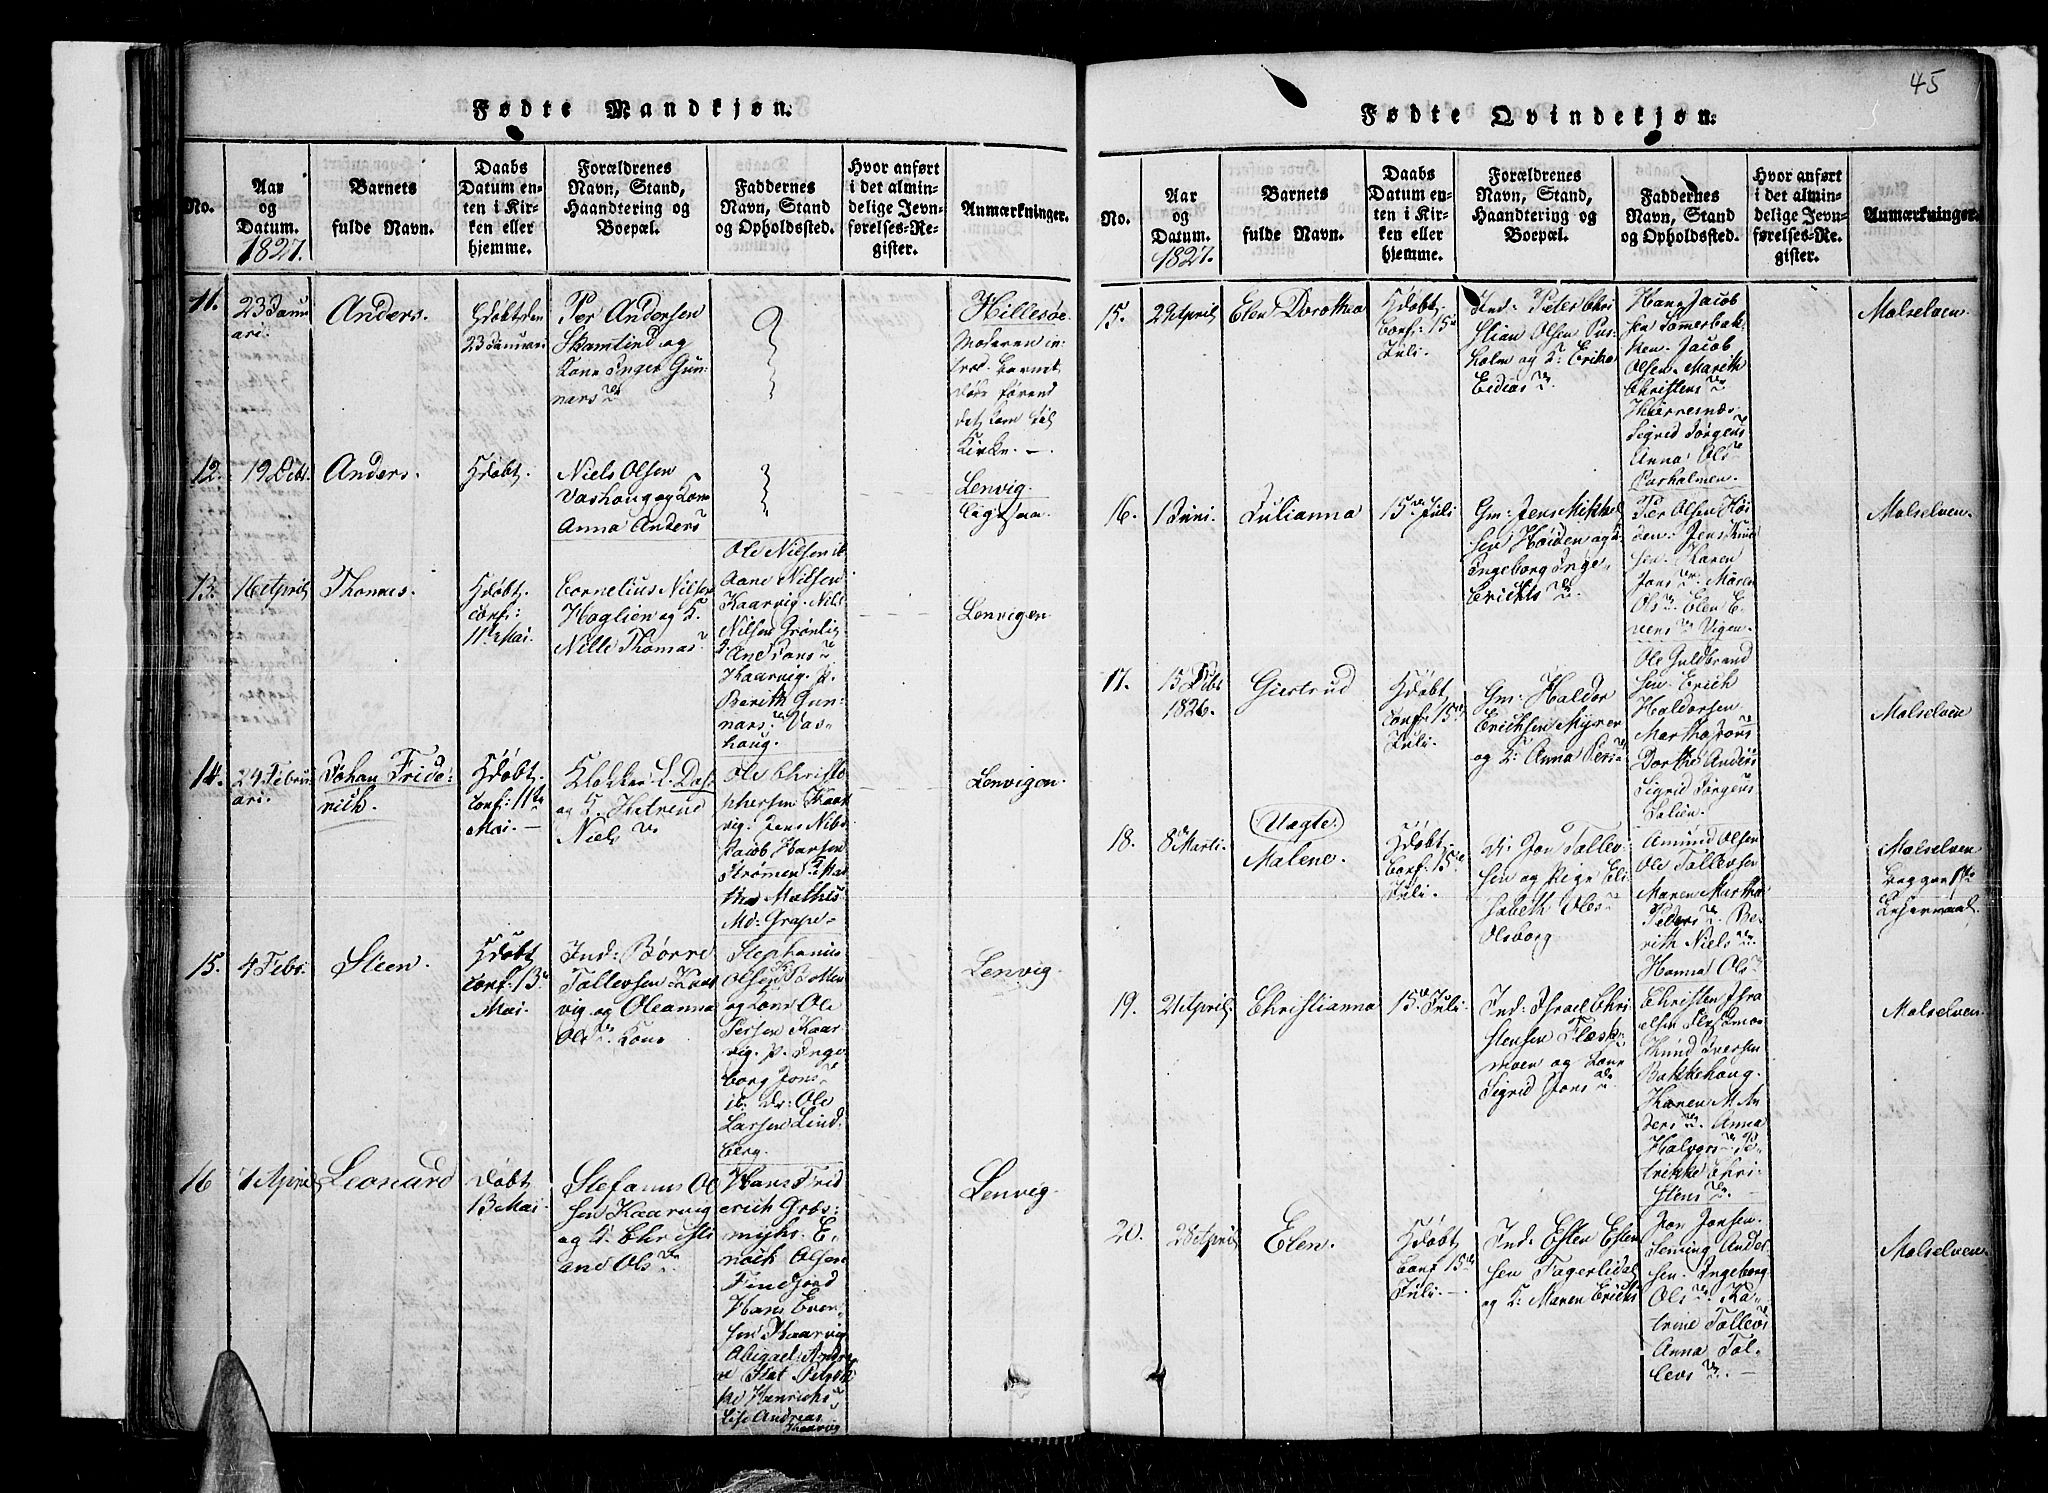 45
Fødte Mandkjøn.
No.
Aar
og
Datum.
1827.
Barnets
fulde Navn.
Daabs
Datum en-
ten i Kir-
ken eller
hjemme.
Forældrenes
Navn, Stand,
Haandtering og
Boepæl.
Faddernes
Navn, Stand
og Opholdssted.
Hvor anført
i det almin-
delige Jevn-
førelses-Re-
gister.
Anmærkninger.
11.
23 Janu
ari.
Anders.
Hdøbt den
23 Januari
Per Andersen
Skamtind og
Kone Inger Gun-
nars
Hillesøe
Barnet
døde førend
det kom til
Kirke. -
12.
19 Febr.
Anders.
Hdøbt.
Niels Olsen
Vashoug og Kone
Anna Anders
Lenvig
13.
16 April
Thomas.
Hdøbt
conf:
11te Mai.
Cornelius Nilsen
Haglien og K.
Nille Thomas
Ole Nilsen ib.
Aane Nilsen
Kaarvig. Nils
Nilsen Grønlig
Kaarvig. p.
Berith Gun-
nars Vas-
houg.
Lenvigen
14.
24 Febru
ari.
Johan Fride-
rich.
Hdøbt.
conf: 11te
Mai. -
Klokker L. Dass
og K.
Niels
Ole Christo
phersen Kaar
vig. Jens Nils.
Jacob Hansen
Strømen Mar
tha Mathis
Md: Grape
Lenvigen.
15.
4 Febr.
Steen.
Hdøbt
conf: 13de
Mai.
Ind: Børre
Tollevsen Kaar
vig og Oleanna
Ols Kone
Stephanus
Olsen Botten
og Kone Ole
Persen Kaar
vig. p. Inge
borg Jons
ib. Dr: Ole
Larsen Lind
berg.
Lenvig
16
7 April
Leonard
Døbt
13 Mai
Stefanus Ol
sen Kaarvig
og K. Christi
and Ols
Hans Frid
erich Grøs-
myhr. E-
noch Olsen
Findjord
Hans Even-
sen Kaarvig
Abigael Andre
Henrichs
Lise Andreas
Kaarvig
Lenvig
Fødte Qvindekjøn.
No.
Aar
og
Datum.
1827.
Barnets
fulde Navn.
Daabs
Datum en-
ten i Kir-
ken eller
hjemme.
Forældrenes
Navn, Stand,
Haandtering og
Boepæl.
Faddernes
Navn, Stand
og Opholdssted.
Hvor anført
i det almin-
delige Jevn-
førelses-Re-
gister.
Anmærkninger.
15.
29 April
Elen Dorothea
Hdøbt
conf: 15de
Juli.
Ind: Peter Chri
stian Olsen Pus-
holm og K: Erika
Hans Jacob
sen Sømerbak-
ken. Jacob
Olsen. Mareth
Christens
Sigrid Jørgens
Anna Ols
Malselven
16.
1 Juni.
Julianna
15de Juli
Gm: Jens Mikkel
sen Høiden og K:
Ingeborg Inge-
Erichs
Per Olsen Høi
den. Jens
sen. Karen
Jons Maren
Ols Elen E-
vens Vigen.
Malselven.
17.
15 Febr
1826.
Giertrud
Hdøbt
conf: 15de
Juli.
Gm: Haldor
Erichsen Myren
og K: Anna Pers
Ole Guldbrand
sen. Erich
Haldorsen
Martha Jons
Dorthe Anders
Sigrid Jørgens
Malselven
18.
8de Marti.
Uægte.
Malene.
Hdøbt.
conf: 15de
Juli.
Dr: Jon Tollev-
sen og Pige Eli-
sabeth Ols
Olsborg
Amund Olsen
Ole Tollevsen
Maren Martha
Peders Be-
rith Niels
Hanna Ols
Malselven
Begges 1te
Leiermaal.
19.
21 April
Christianna
15de Juli
Ind: Israel Chri
stensen Flesk-
moen og Kone
Sigrid Jons
Christen Isra
elsen
Knud Iversen
Bakkehoug.
Karen M. An
ders Anna
Halvors
Chri-
stens
Malselven.
20.
28 April
Elen.
Hdøbt
conf 15de
Juli. -
Ind: Esten Esten
sen Fagerlidal
og K: Maren Erichs
Jon Jonsen.
Seming Ander
sen. Ingeborg
Ols Ka-
trine Tollevs
Anna Tol-
levs
Malselven.